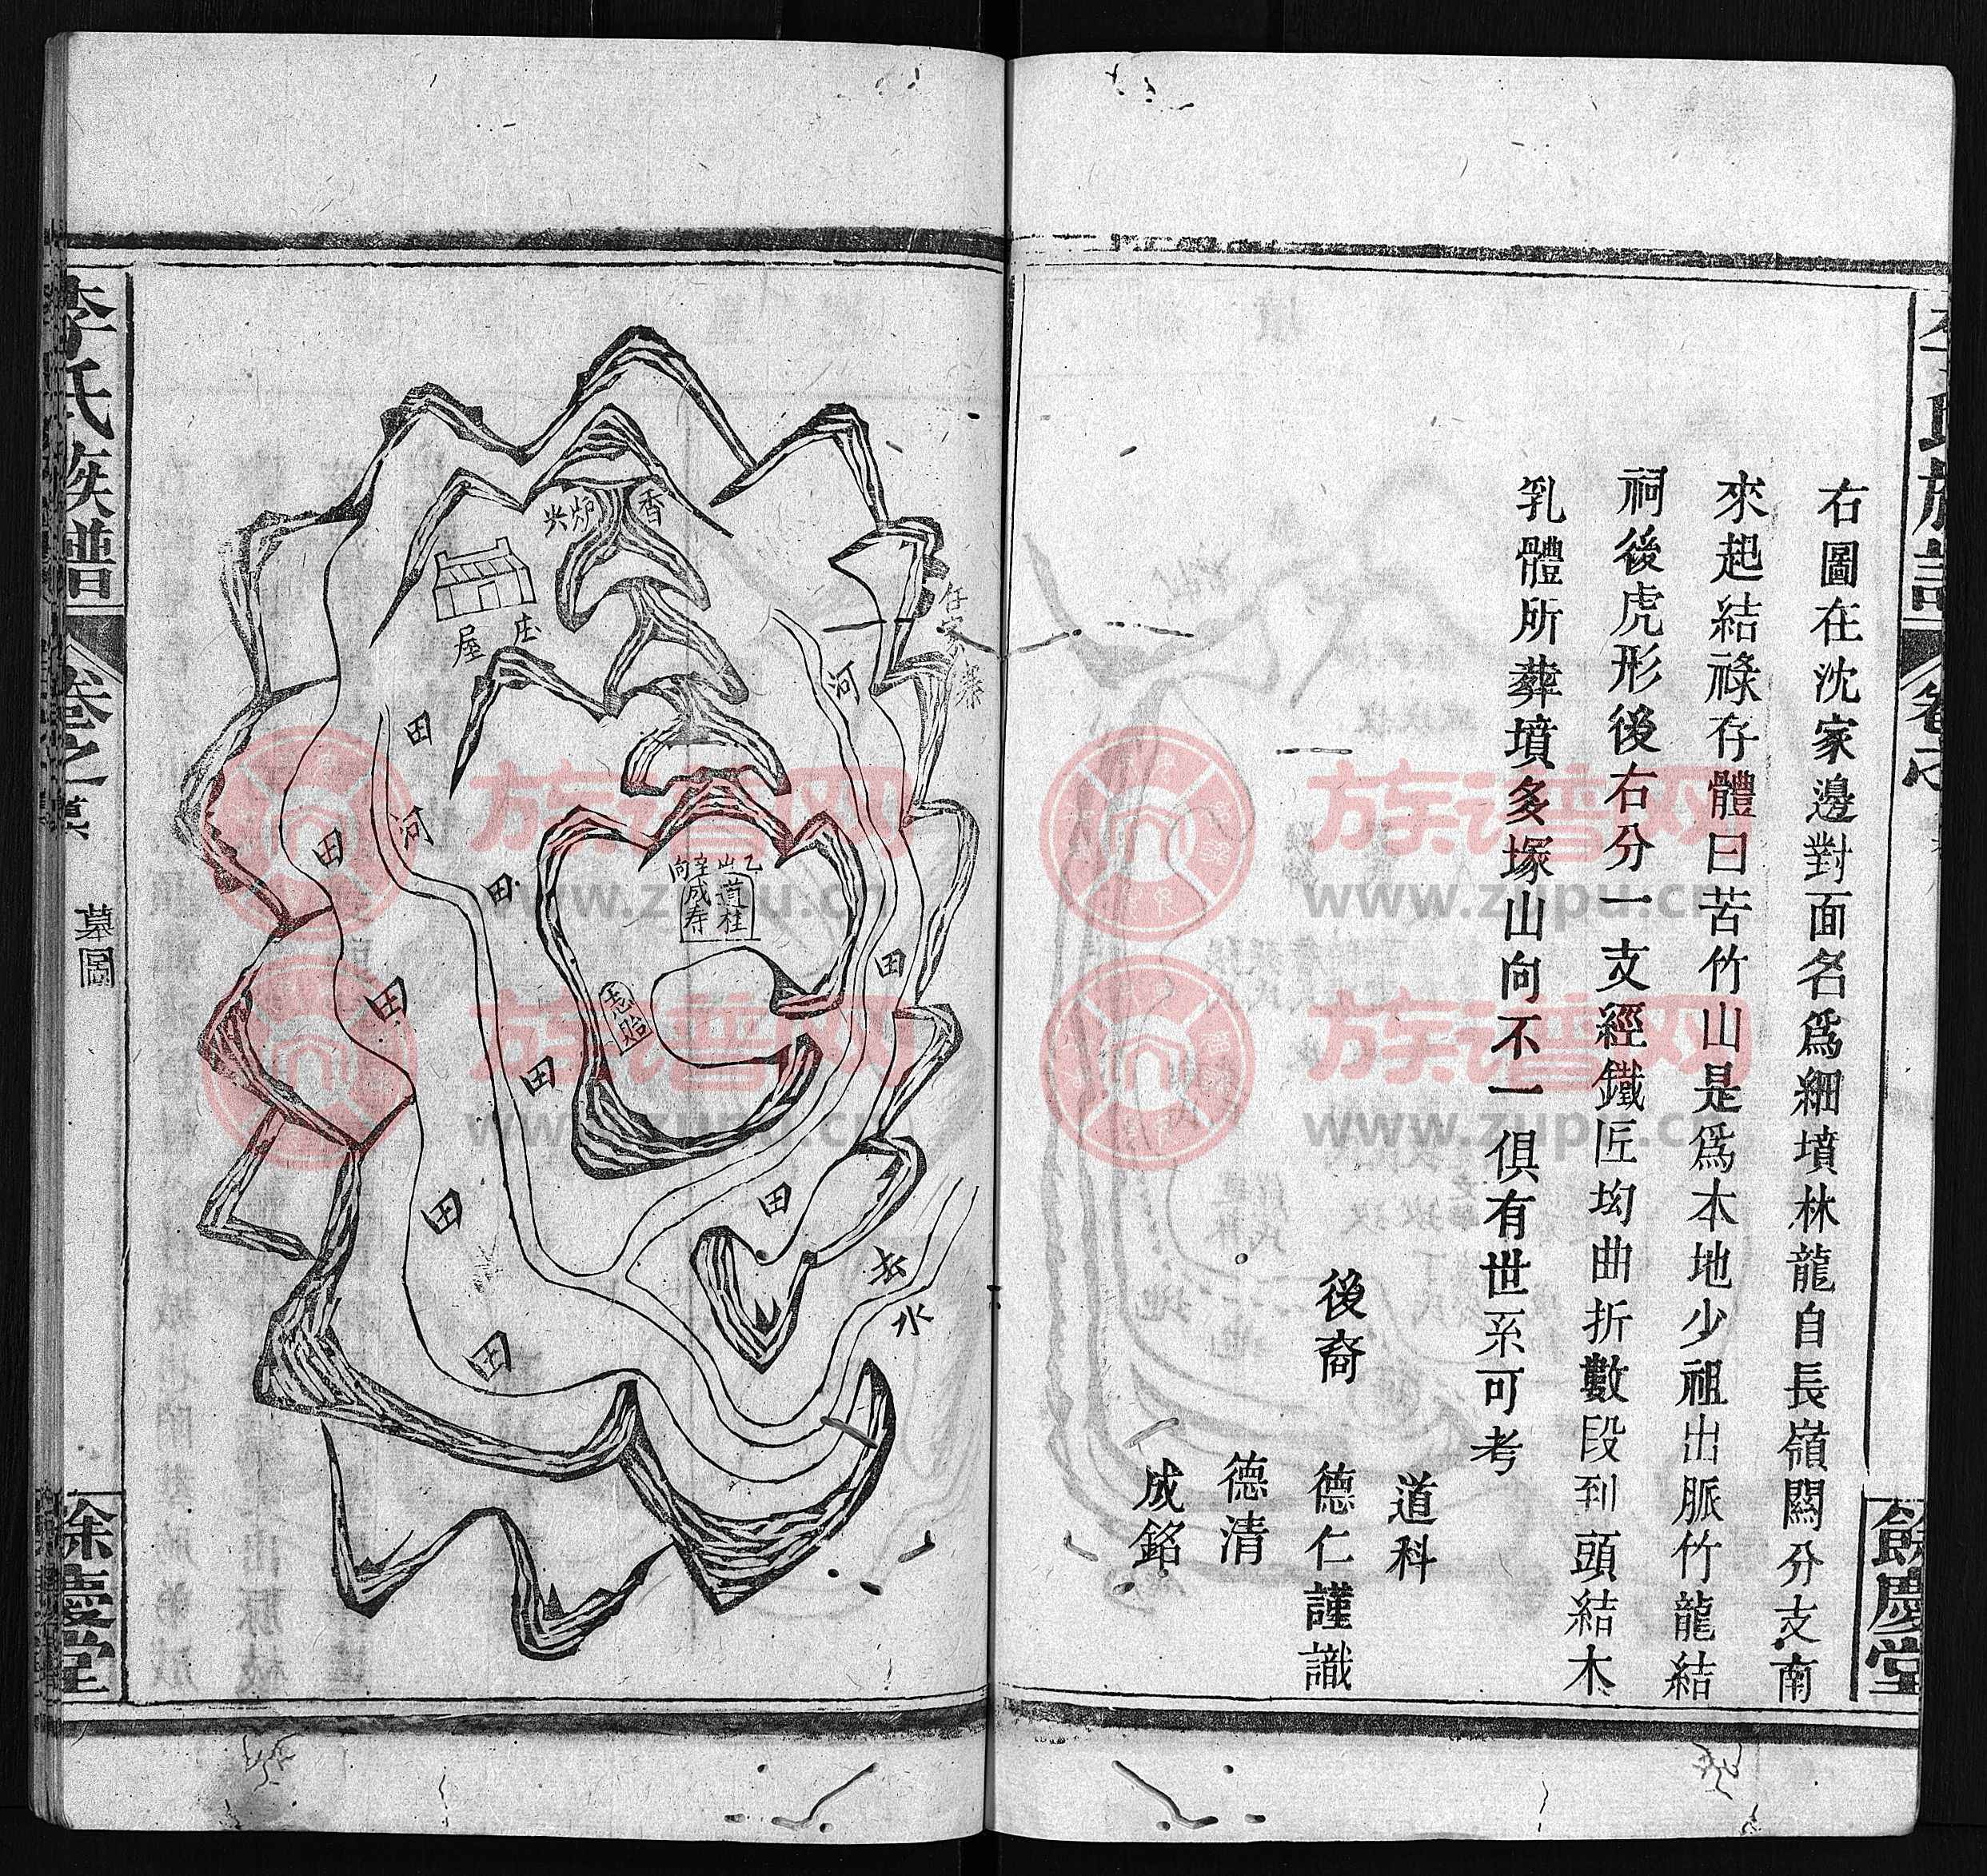 右圖在沈家邊對面名爲細墳林龍自長嶺關分支南
來起結祿存體曰苦竹山是爲本地少祖出脈竹龍結
祠後虎形後右分一支經鐵匠坳曲折數段到頭結木
乳體所葬墳多塚山向不一俱有世系可考
道科
後裔 德仁謹識
德清
成銘
餘慶堂
香炉尖
庄屋
河
田
河
田
田
乙山辛向
道桂
成寿
志貽
田
田
田
田
田
田
去水
李氏族譜
卷之
墓圖
餘慶堂
族谱网
www.zupu.cn
族谱网
www.zupu.cn
族谱网
www.zupu.cn
族谱网
www.zupu.cn